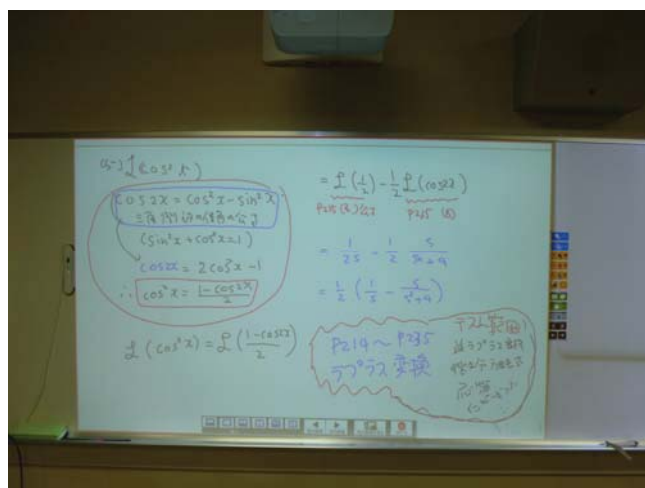 (5-) ℒ(cos² x)
cos2x = cos²x - sin²x
三角関数の倍角の公式
(sin²x + cos²x = 1)
cos2x = 2cos²x - 1
∴ cos²x = (1-cos2x)/2
ℒ(cos²x) = ℒ((1-cos2x)/2)
= ℒ(1/2) - 1/2 ℒ(cos2x)
P215
P215
= 1/2s - 1/2 s/(s²+4)
= 1/2 (1/s - s/(s²+4))
P214〜P235
ラプラス変換
テスト範囲
逆ラプラス変換
応算